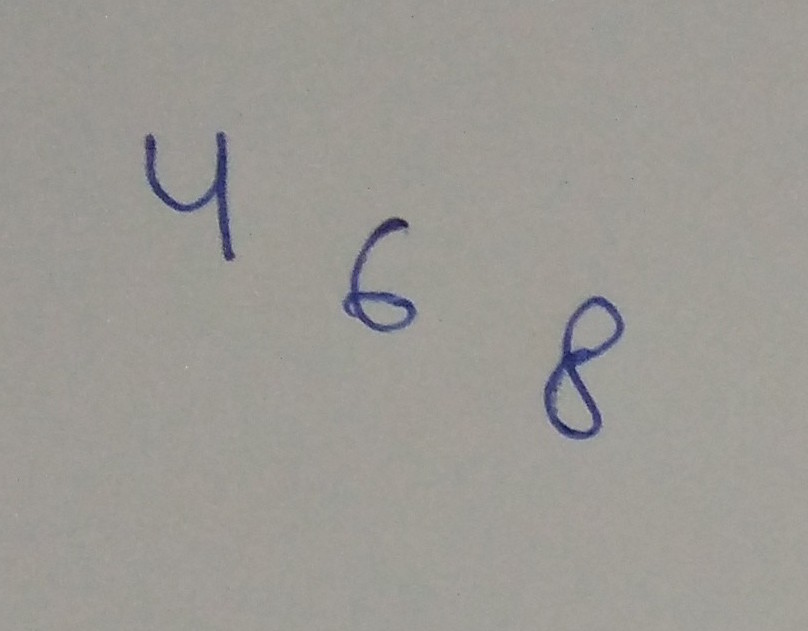 4 6 8